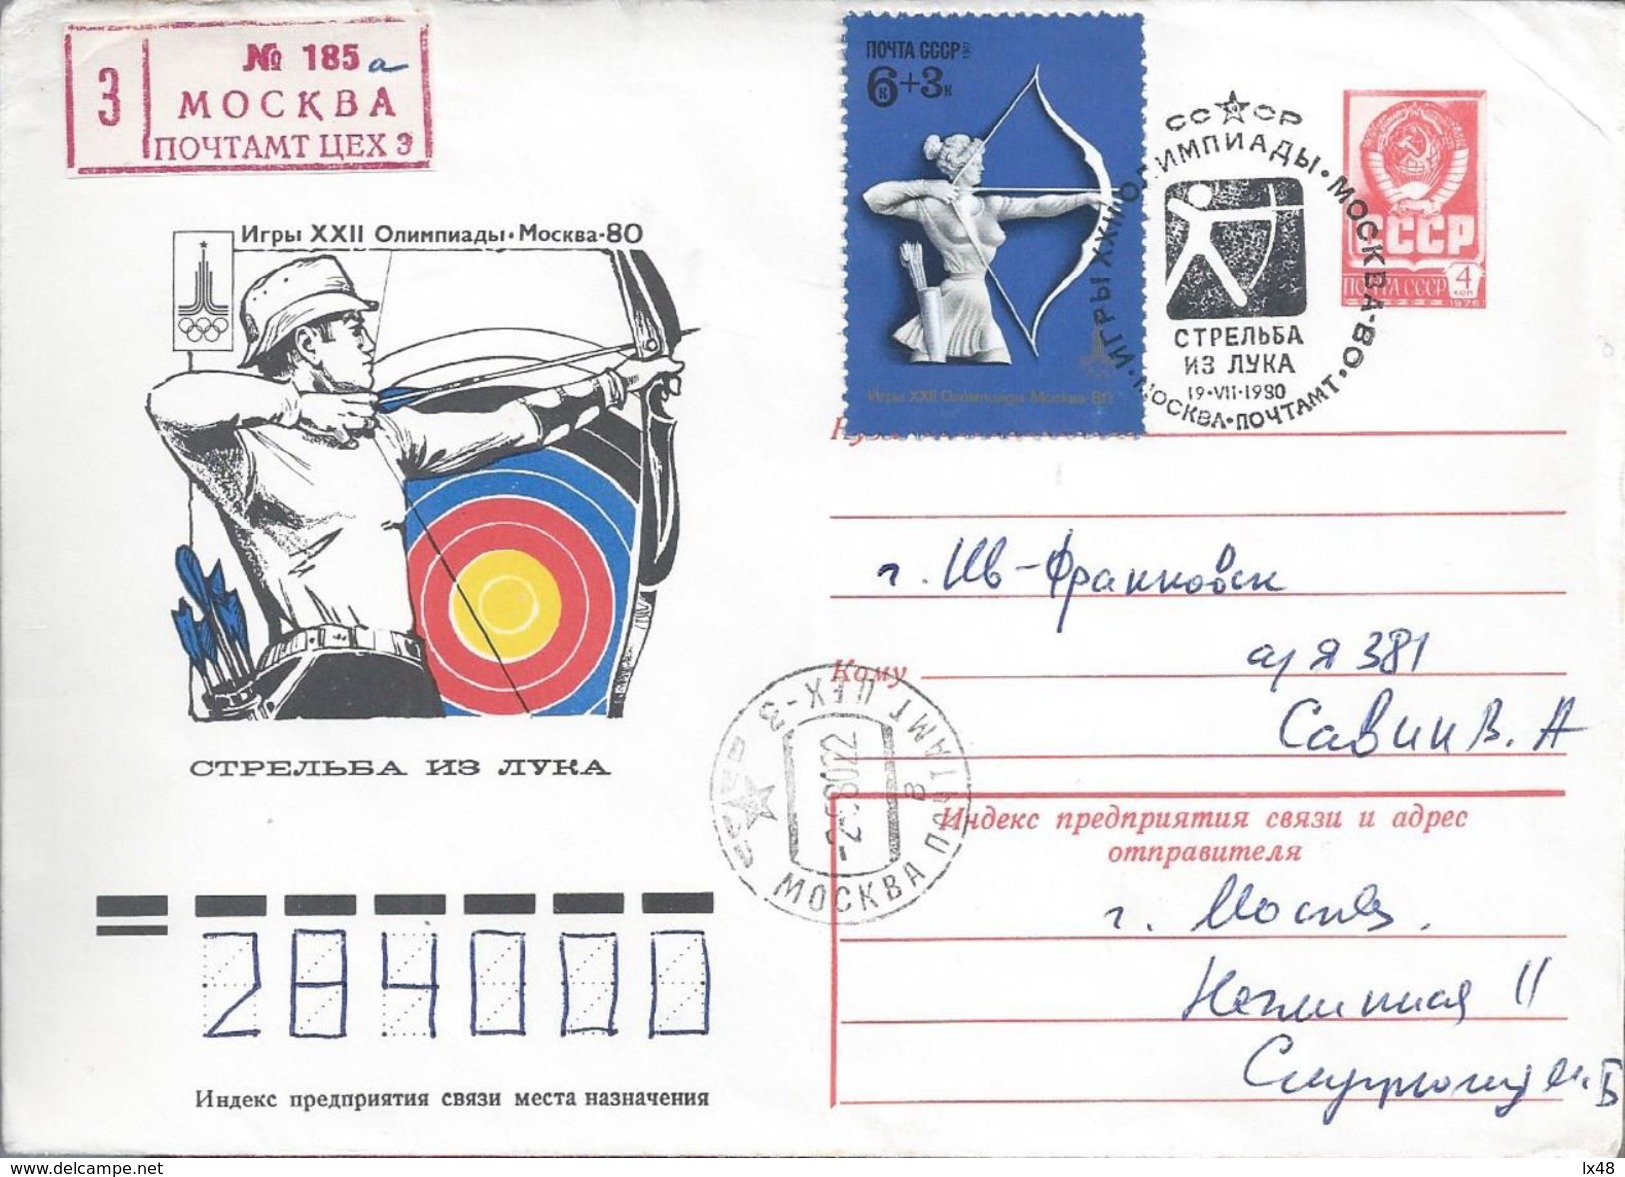 № 185 а
З
МОСКВА
ПОЧТАМТ ЦЕХ 3
Игры XXII Олимпиады·Москва·80
СТРЕЛЬБА ИЗ ЛУКА
ПОЧТА СССР 1977
6к+3к
Игры XXII Олимпиады Москва 80
СССР
ИГРЫ XXII ОЛИМПИАДЫ·МОСКВА-80
СТРЕЛЬБА
ИЗ ЛУКА
19·VII·1980
·МОСКВА·ПОЧТАМТ·
СССР
ПОЧТА СССР
4
КОП
1976
Куда
г. Ив-Франковск
Кому
а/я 381
Савин В. А
МОСКВА ПОЧТАМТ ЦЕХ-3
В
СССР
Индекс предприятия связи и адрес
отправителя
г. Москва.
Неглинная 11
284000
Индекс предприятия связи места назначения
www.delcampe.net
lx48